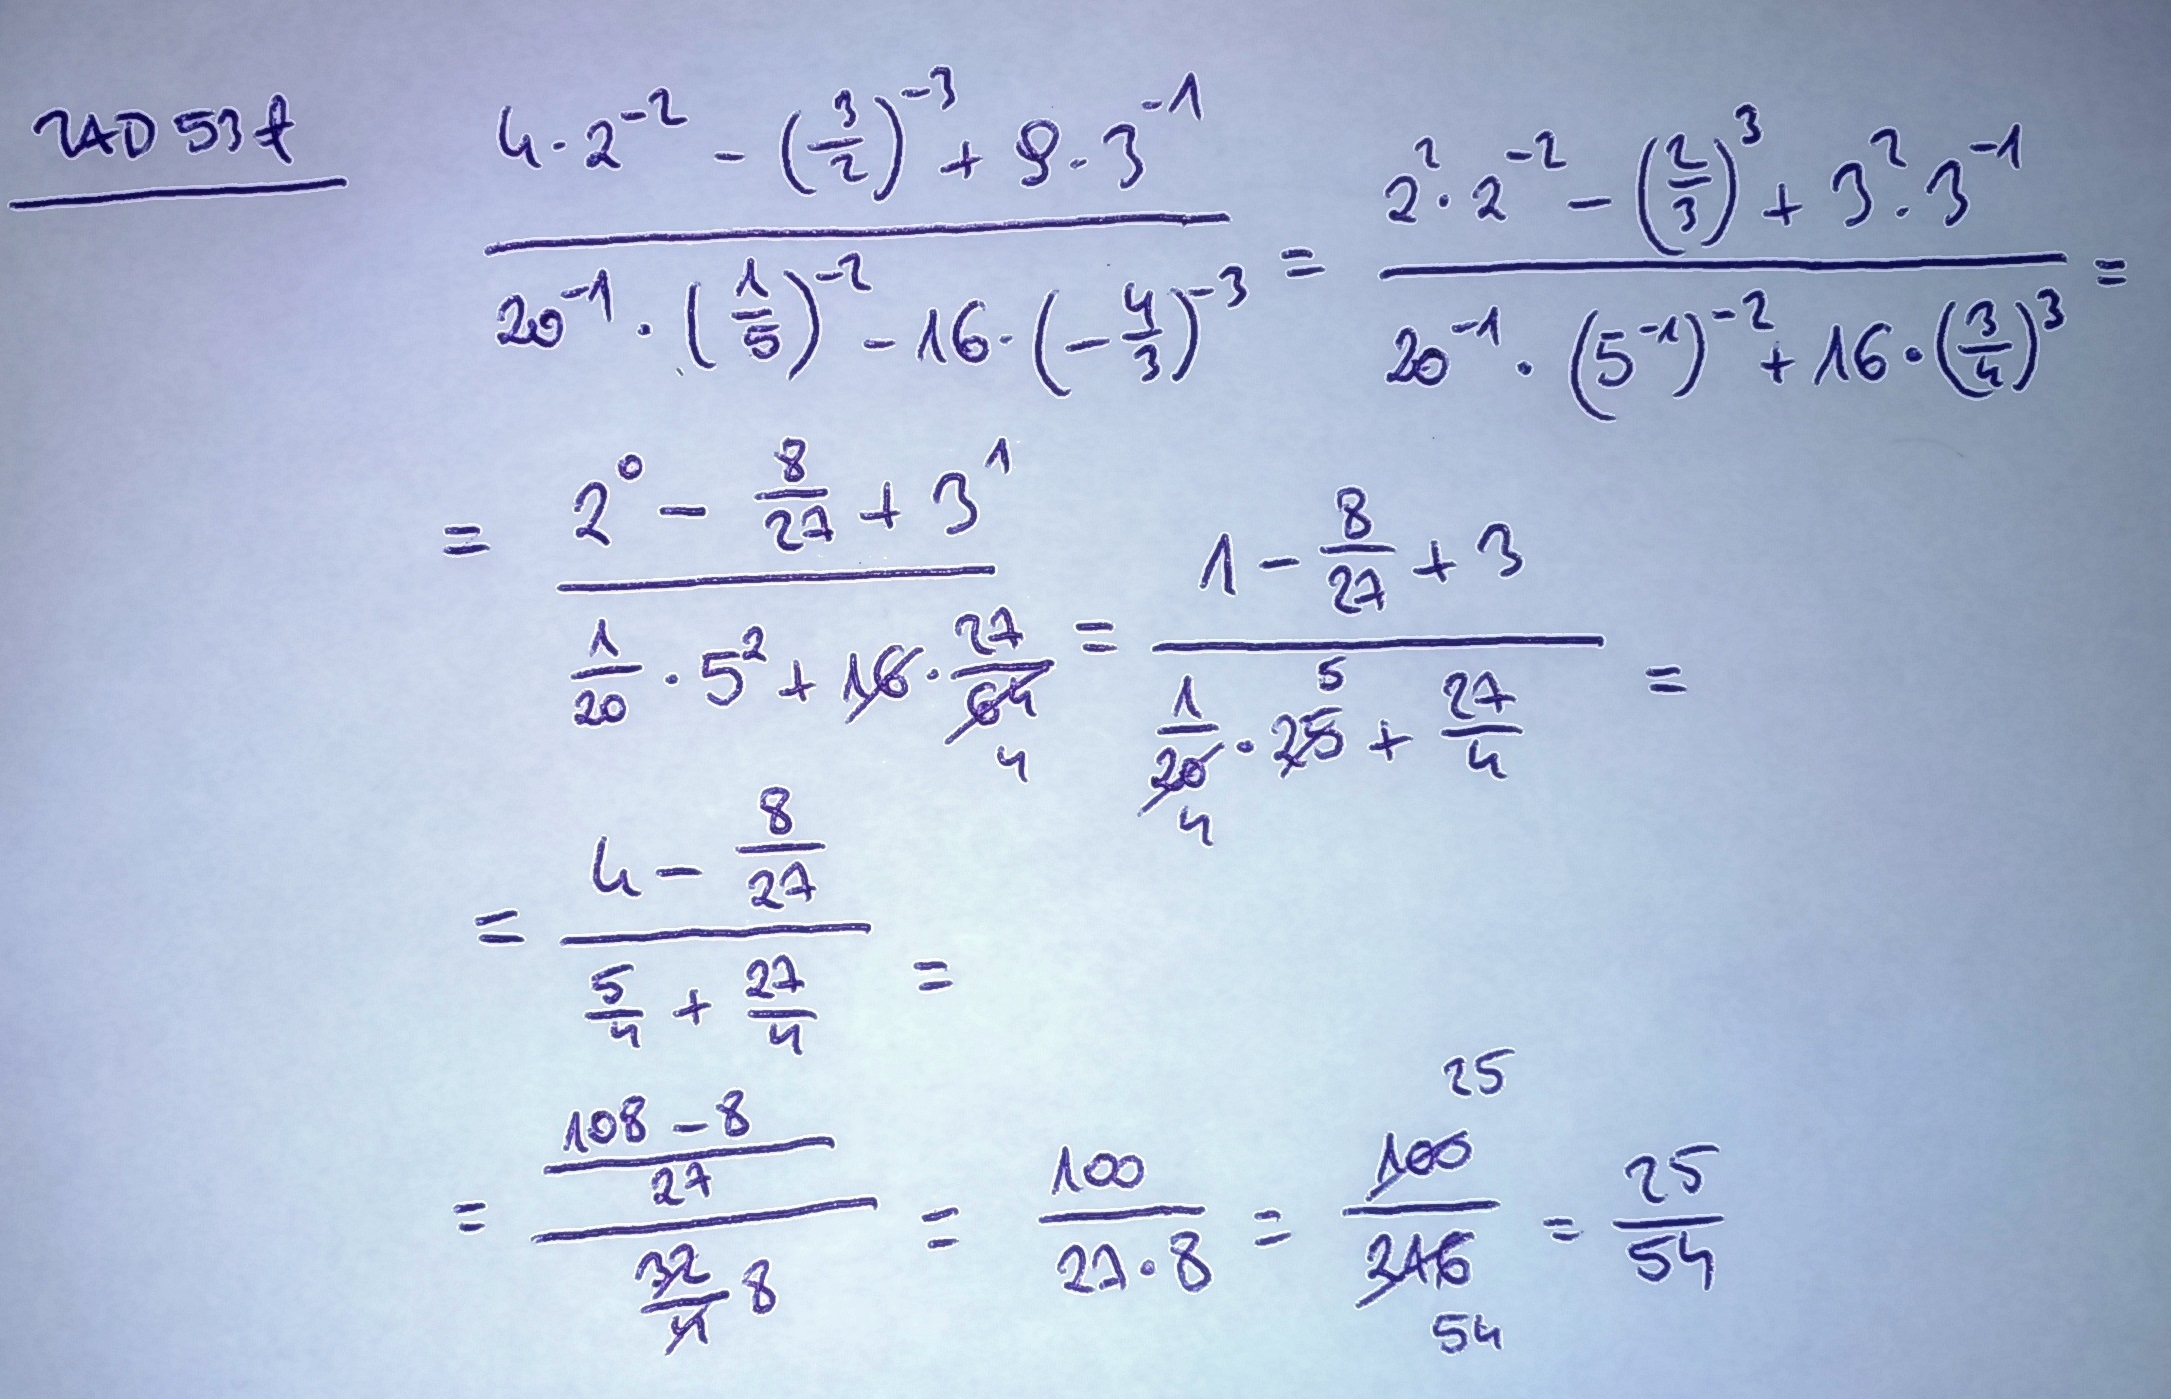 ZAD 53 f
\frac{4 \cdot 2^{-2} - (\frac{3}{2})^{-3} + 9 \cdot 3^{-1}}{20^{-1} \cdot (\frac{1}{5})^{-2} - 16 \cdot (-\frac{4}{3})^{-3}} = \frac{2^2 \cdot 2^{-2} - (\frac{2}{3})^3 + 3^2 \cdot 3^{-1}}{20^{-1} \cdot (5^{-1})^{-2} + 16 \cdot (\frac{3}{4})^3} =
= \frac{2^0 - \frac{8}{27} + 3^1}{\frac{1}{20} \cdot 5^2 + \cancel{16} \cdot \frac{27}{\cancel{64} 4}} = \frac{1 - \frac{8}{27} + 3}{\frac{1}{\cancel{20} 4} \cdot \cancel{25} 5 + \frac{27}{4}} =
= \frac{4 - \frac{8}{27}}{\frac{5}{4} + \frac{27}{4}} =
= \frac{\frac{108 - 8}{27}}{\frac{\cancel{32}}{\cancel{4}} 8} = \frac{100}{27 \cdot 8} = \frac{\cancel{100} 25}{\cancel{216} 54} = \frac{25}{54}